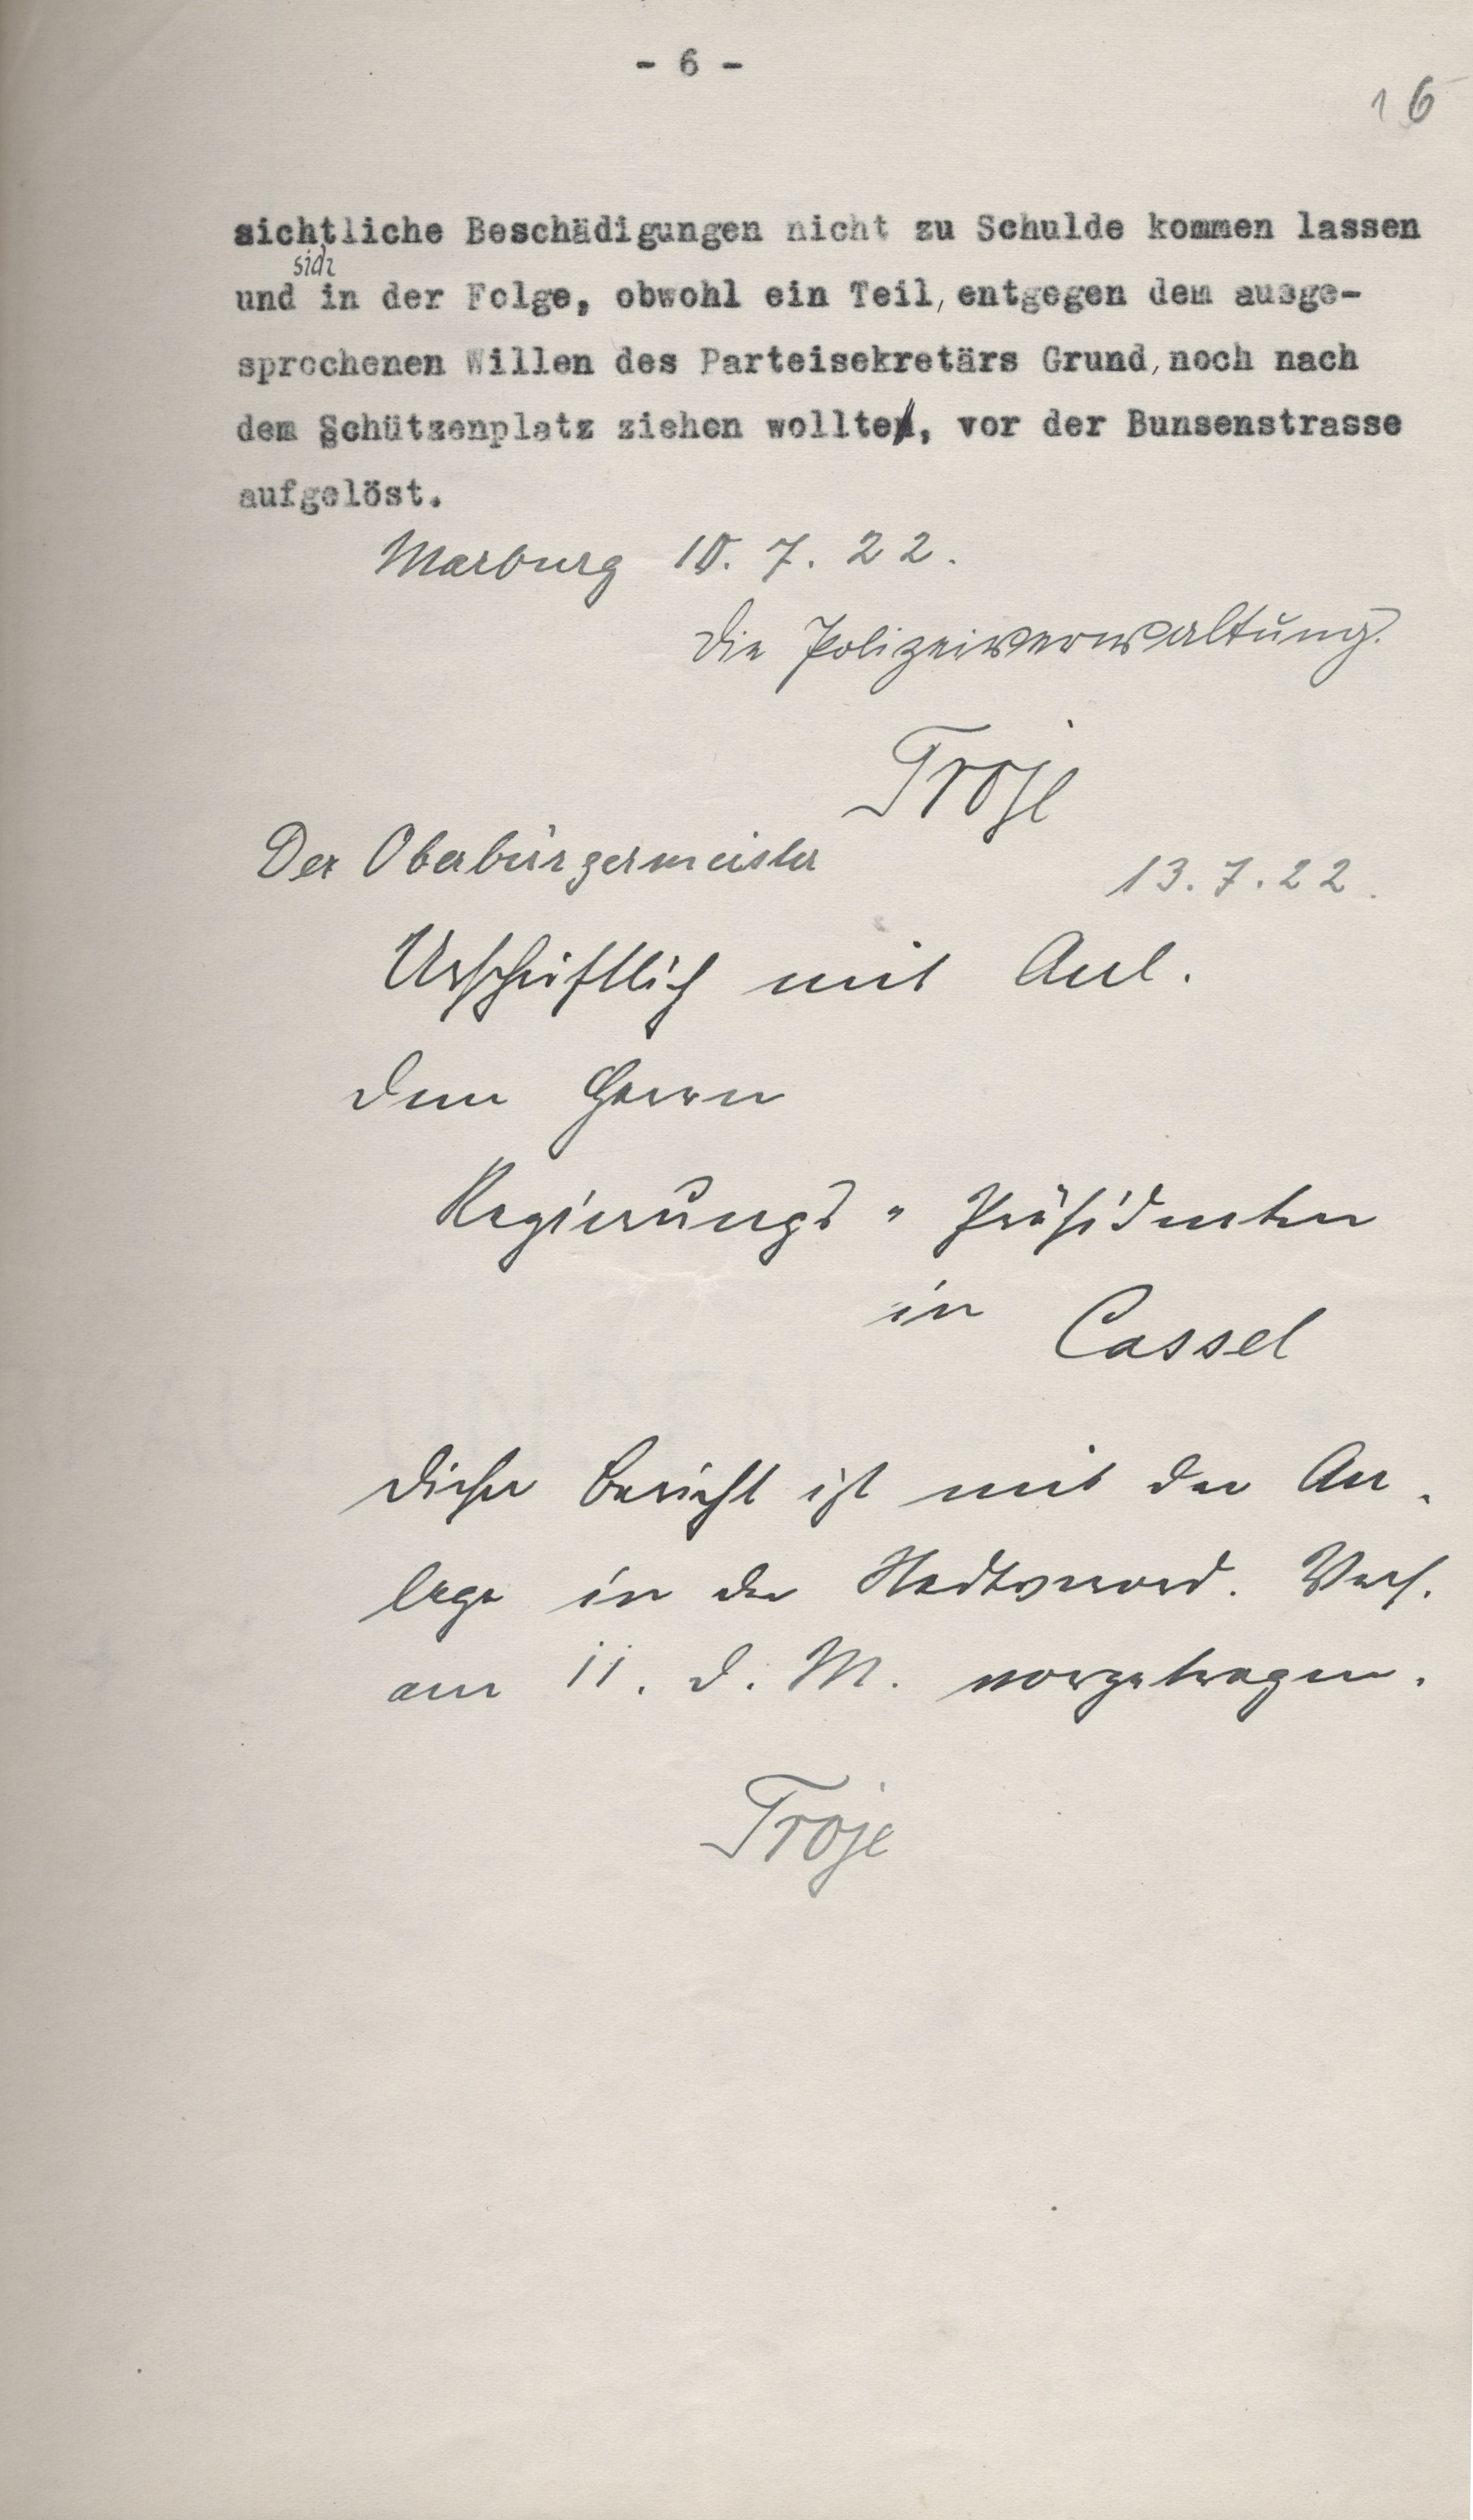 - 6 -
16
sichtliche Beschädigungen nicht zu Schulde kommen lassen
sich
und in der Folge, obwohl ein Teil, entgegen dem ausge-
sprochenen Willen des Parteisekretärs Grund, noch nach
dem Schützenplatz ziehen wollte, vor der Bunsenstrasse
aufgelöst.
Marburg 10. 7. 22.
Die Polizeiverwaltung.
Troje
Der Oberbürgermeister
13. 7. 22.
Urschriftlich mit Anl.
dem Herrn
Regierungs-Präsidenten
in Cassel
Dieser Bericht ist mit der An-
lage in der Stadtverord. Vers.
am 11. d. M. vorgetragen.
Troje